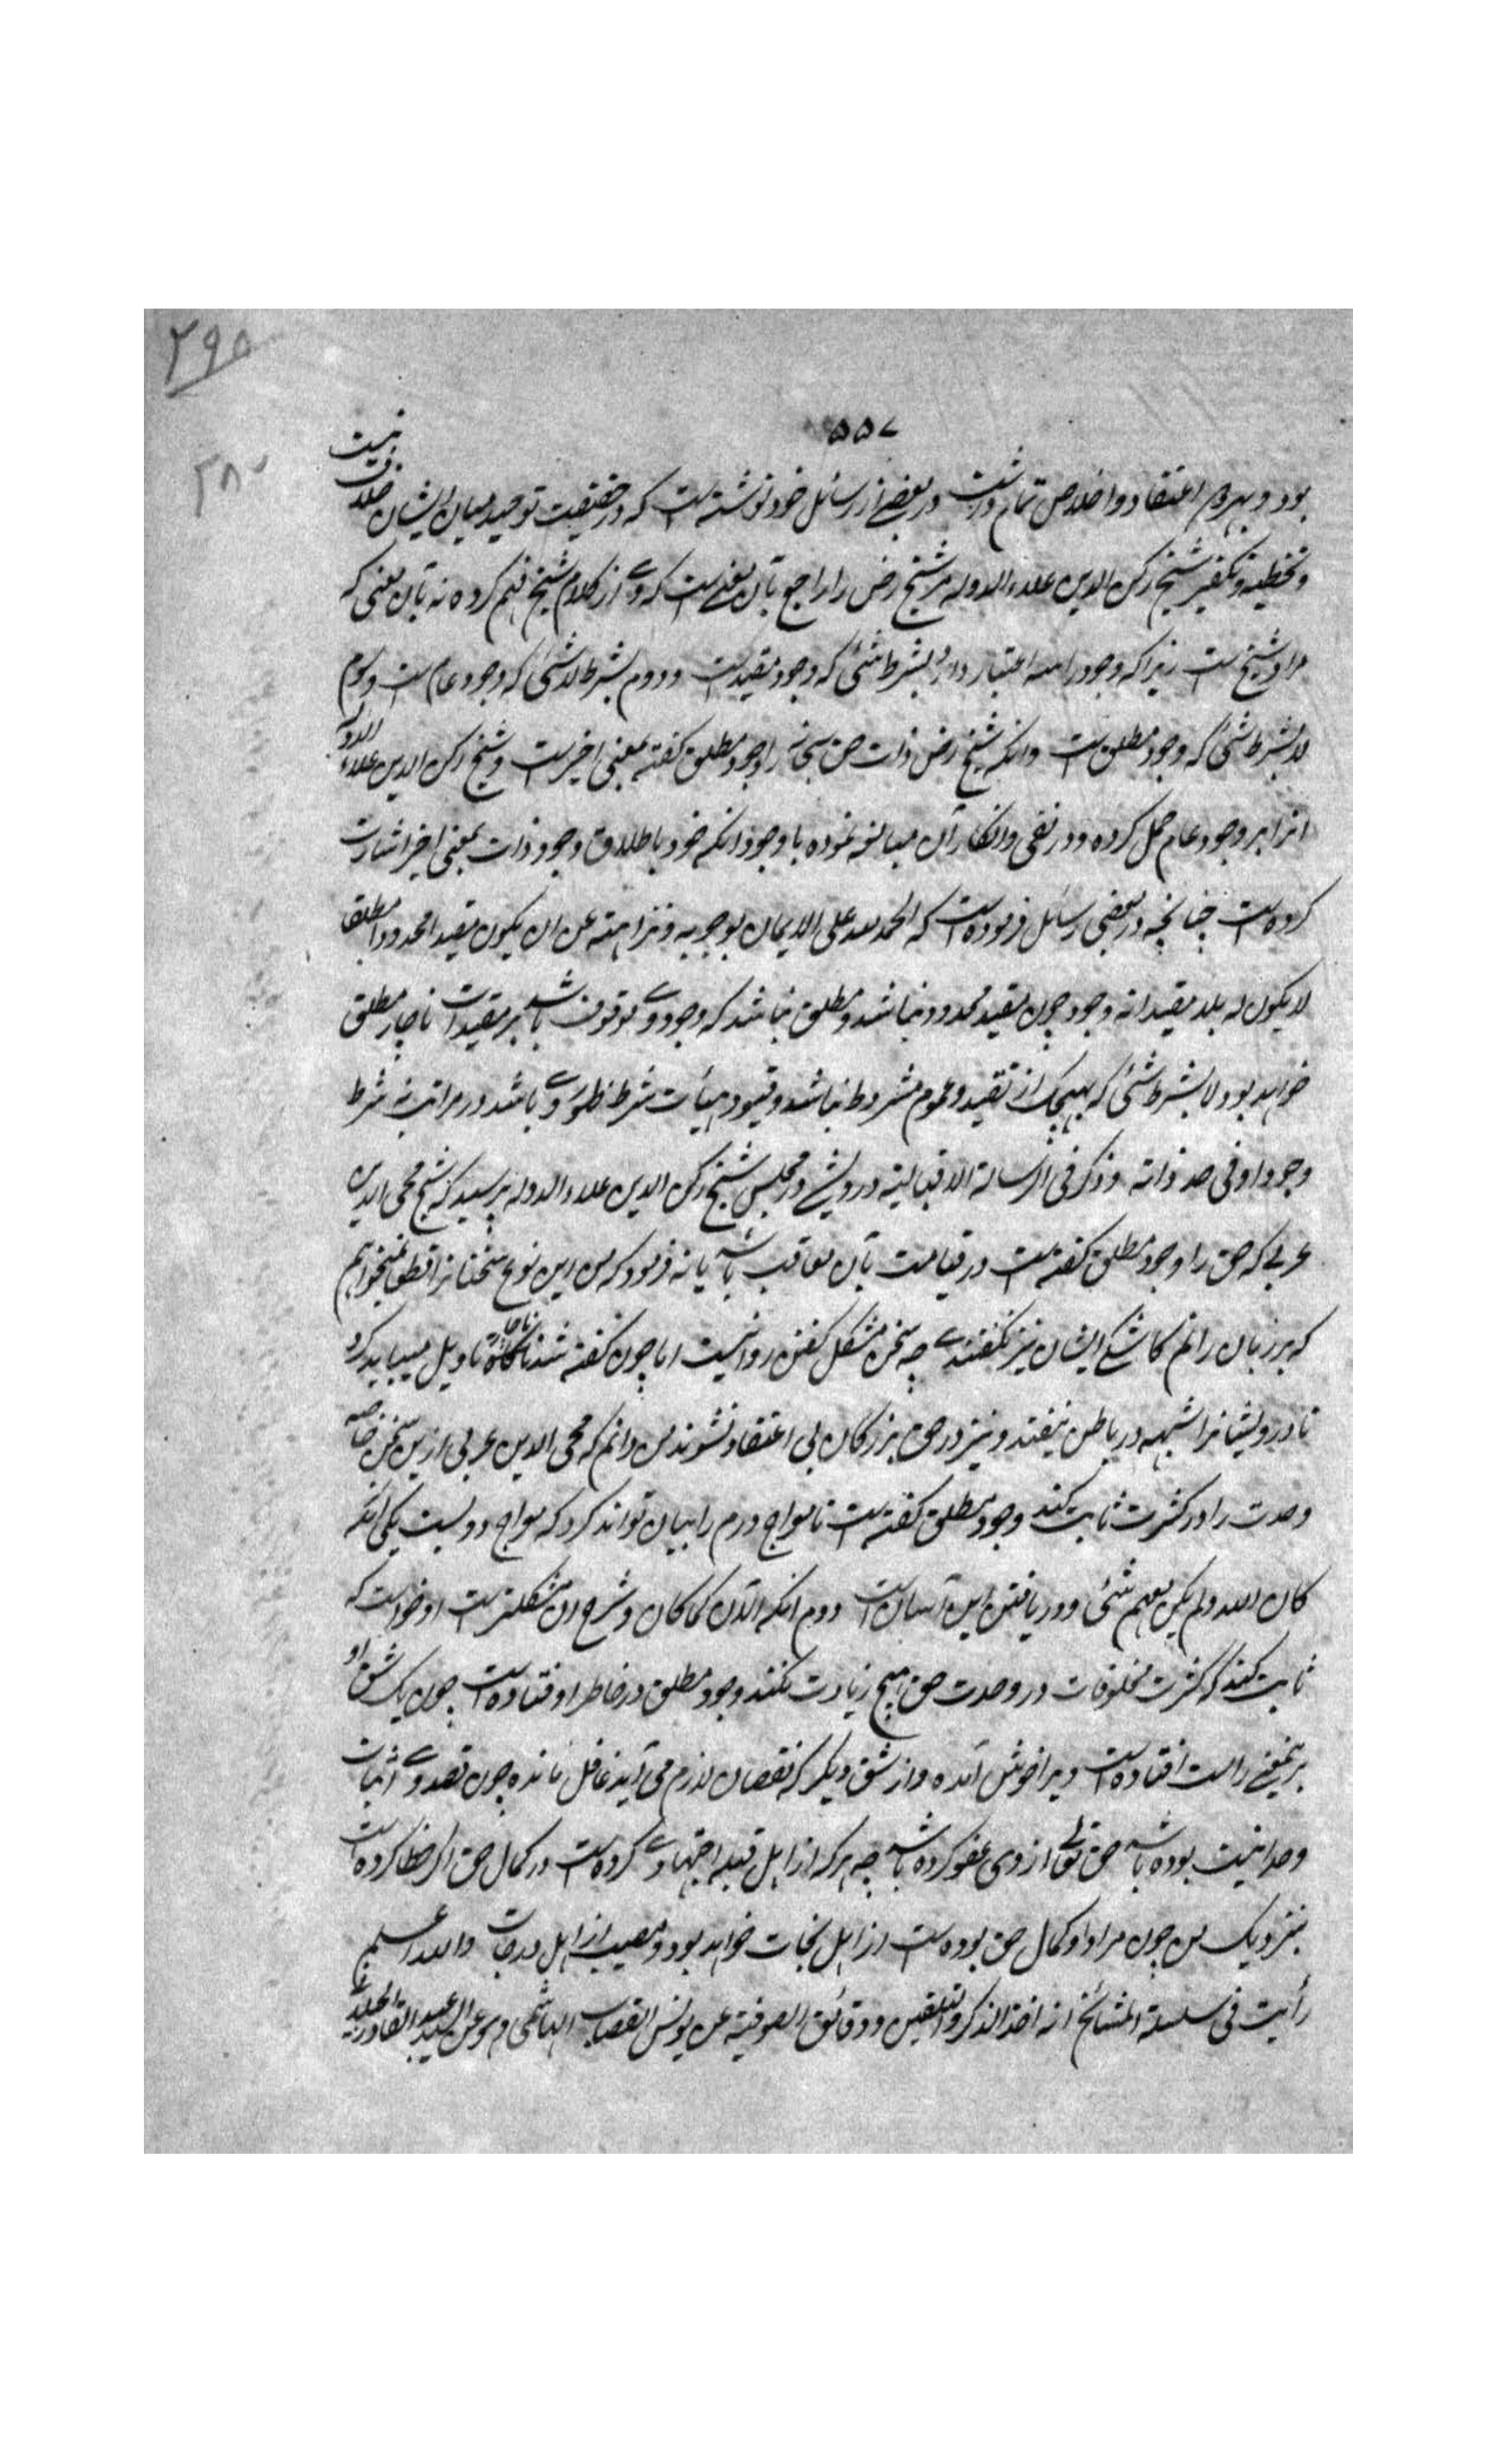 ۲۹۵
۵۵۷
۳۸۰
بود و بهر دو اعتقاد و اخلاص تمام داشت در بعضے از رسائل خود نوشته است که در حقیقت توحید میان ایشان خلاف نیست
و تخطیه و تکفیر شیخ رکن الدین علاء الدوله مر شیخ رض را راجع بآن معنے است که وے از کلام شیخ فهم کرده نه بآن معنی که
مراد شیخ است زیرا که وجود را سه اعتبار دارد بشرط شئ که وجود مقید است و دوم بشرط لا شئ که وجود عام است و سوم
لا بشرط شئ که وجود مطلق است و انکه شیخ رض ذات حق سبحانه را وجود مطلق گفته بمعنی اخیر است و شیخ رکن الدین علاء الدوله
انرا بر وجود عام حمل کرده و در نفی و انکار آن مبالغه نموده با وجود انکه خود باطلاق وجود ذات بمعنی اخیر اشارت
کرده است چنانچه در بعضی رسائل فرموده است که الحمد لله علی الایمان بوجوبه و نزاهته عن ان یکون مقیدا محدودا و مطلقا
لا یکون له بلا مقیداته وجود چون مقید محدود نباشد و مطلق نباشد که وجود وے موقوف باشد بر مقیدات ناچار مطلق
خواهد بود لا بشرط شئ که بهیچیک از تقید و عموم مشروط نباشد و قیود و تعینات شرط ظهور وے باشد در مراتب نه شرط
وجود او فی حد ذاته و ذکر فی الرسالة الاقبالیة درویشے در مجلس شیخ رکن الدین علاء الدوله پرسید که شیخ محی الدین
عربے که حق را وجود مطلق گفته است در قیامت بآن معاقب باشد یا نه فرمود که من این نوع سخنانرا قطعا نمیخواهم
که بر زبان رانم کاشکے ایشان نیز نگفتندے چه سخن مشکل گفتن روا نیست اما چون گفته شد ناچار تاویل میباید کرد
تا درویشانرا شبهه در باطن نیفتد و نیز در حق بزرگان بی اعتقاد نشوند من دانم که محی الدین عربی ازین سخن خواسته
وحدت را در کثرت ثابت کند وجود مطلق گفته است تا معراج دوم را بیان تواند کرد که معراج دو است یکی آنکه
کان الله و لم یکن معه شئ و دریافتن این آسان است دوم انکه الآن کما کان و شرح این مشکلتر است او خواست که
ثابت کند که کثرت مخلوقات در وحدت حق هیچ زیادت نکند وجود مطلق در خاطر او فتاده است چون یک شق او
برین معنے راست افتاده است ویرا خوش آمده و از شق دیگر که نقصان لازم می آید غافل مانده چون قصد وے اثبات
وحدانیت بوده باشد حق تعالی از وی عفو کرده باشد چه هر که از اهل قبله اجتهادے کرده است در کمال حق اگر خطا کرده است
بنزدیک من چون مراد او کمال حق بوده است از اهل نجات خواهد بود و مصیب از اهل درجات والله اعلم
رأیت فی سلسلة المشائخ انه اخذ الذکر و التلقین و دقائق الصوفیة عن یونس القصاب الهاشمی و هو عن السید عبد القادر الجیلی